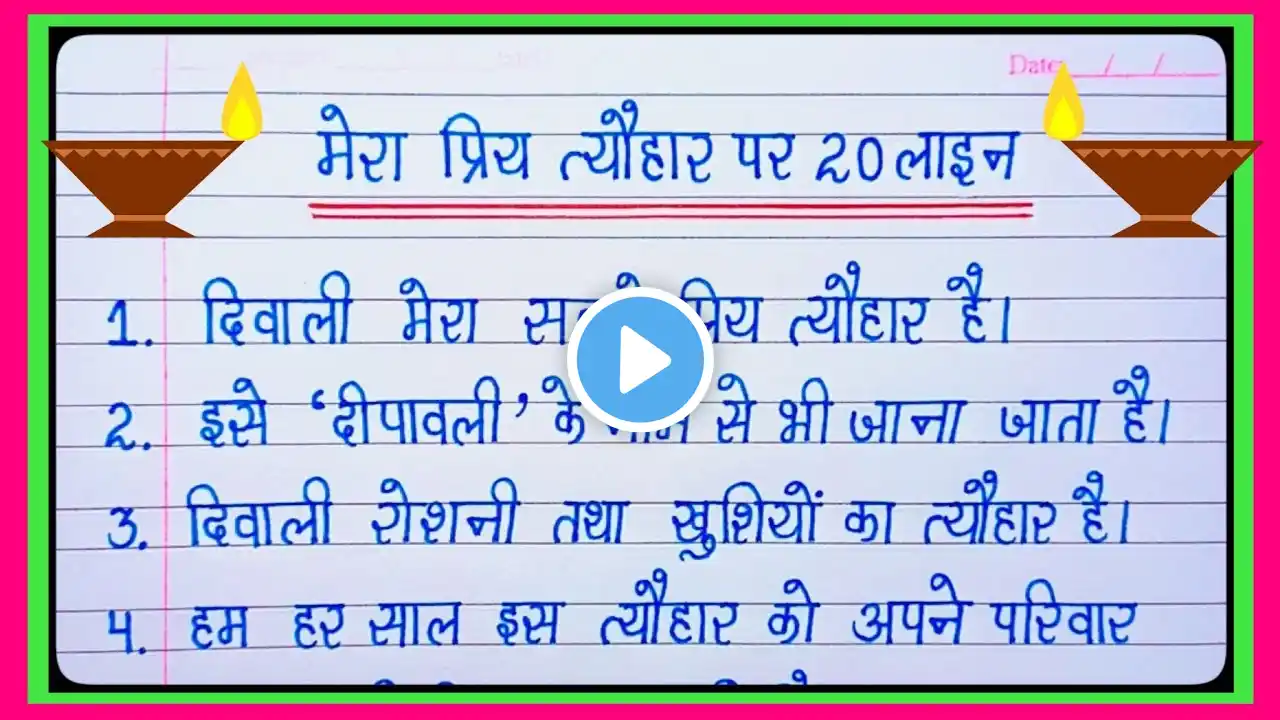 Date: / /
मेरा प्रिय त्यौहार पर 20 लाइन
1. दिवाली मेरा प्रिय त्यौहार है।
2. इसे ‘दीपावली’ के से भी जाना जाता है।
3. दिवाली रोशनी तथा खुशियों का त्यौहार है।
4. हम हर साल इस त्यौहार को अपने परिवार